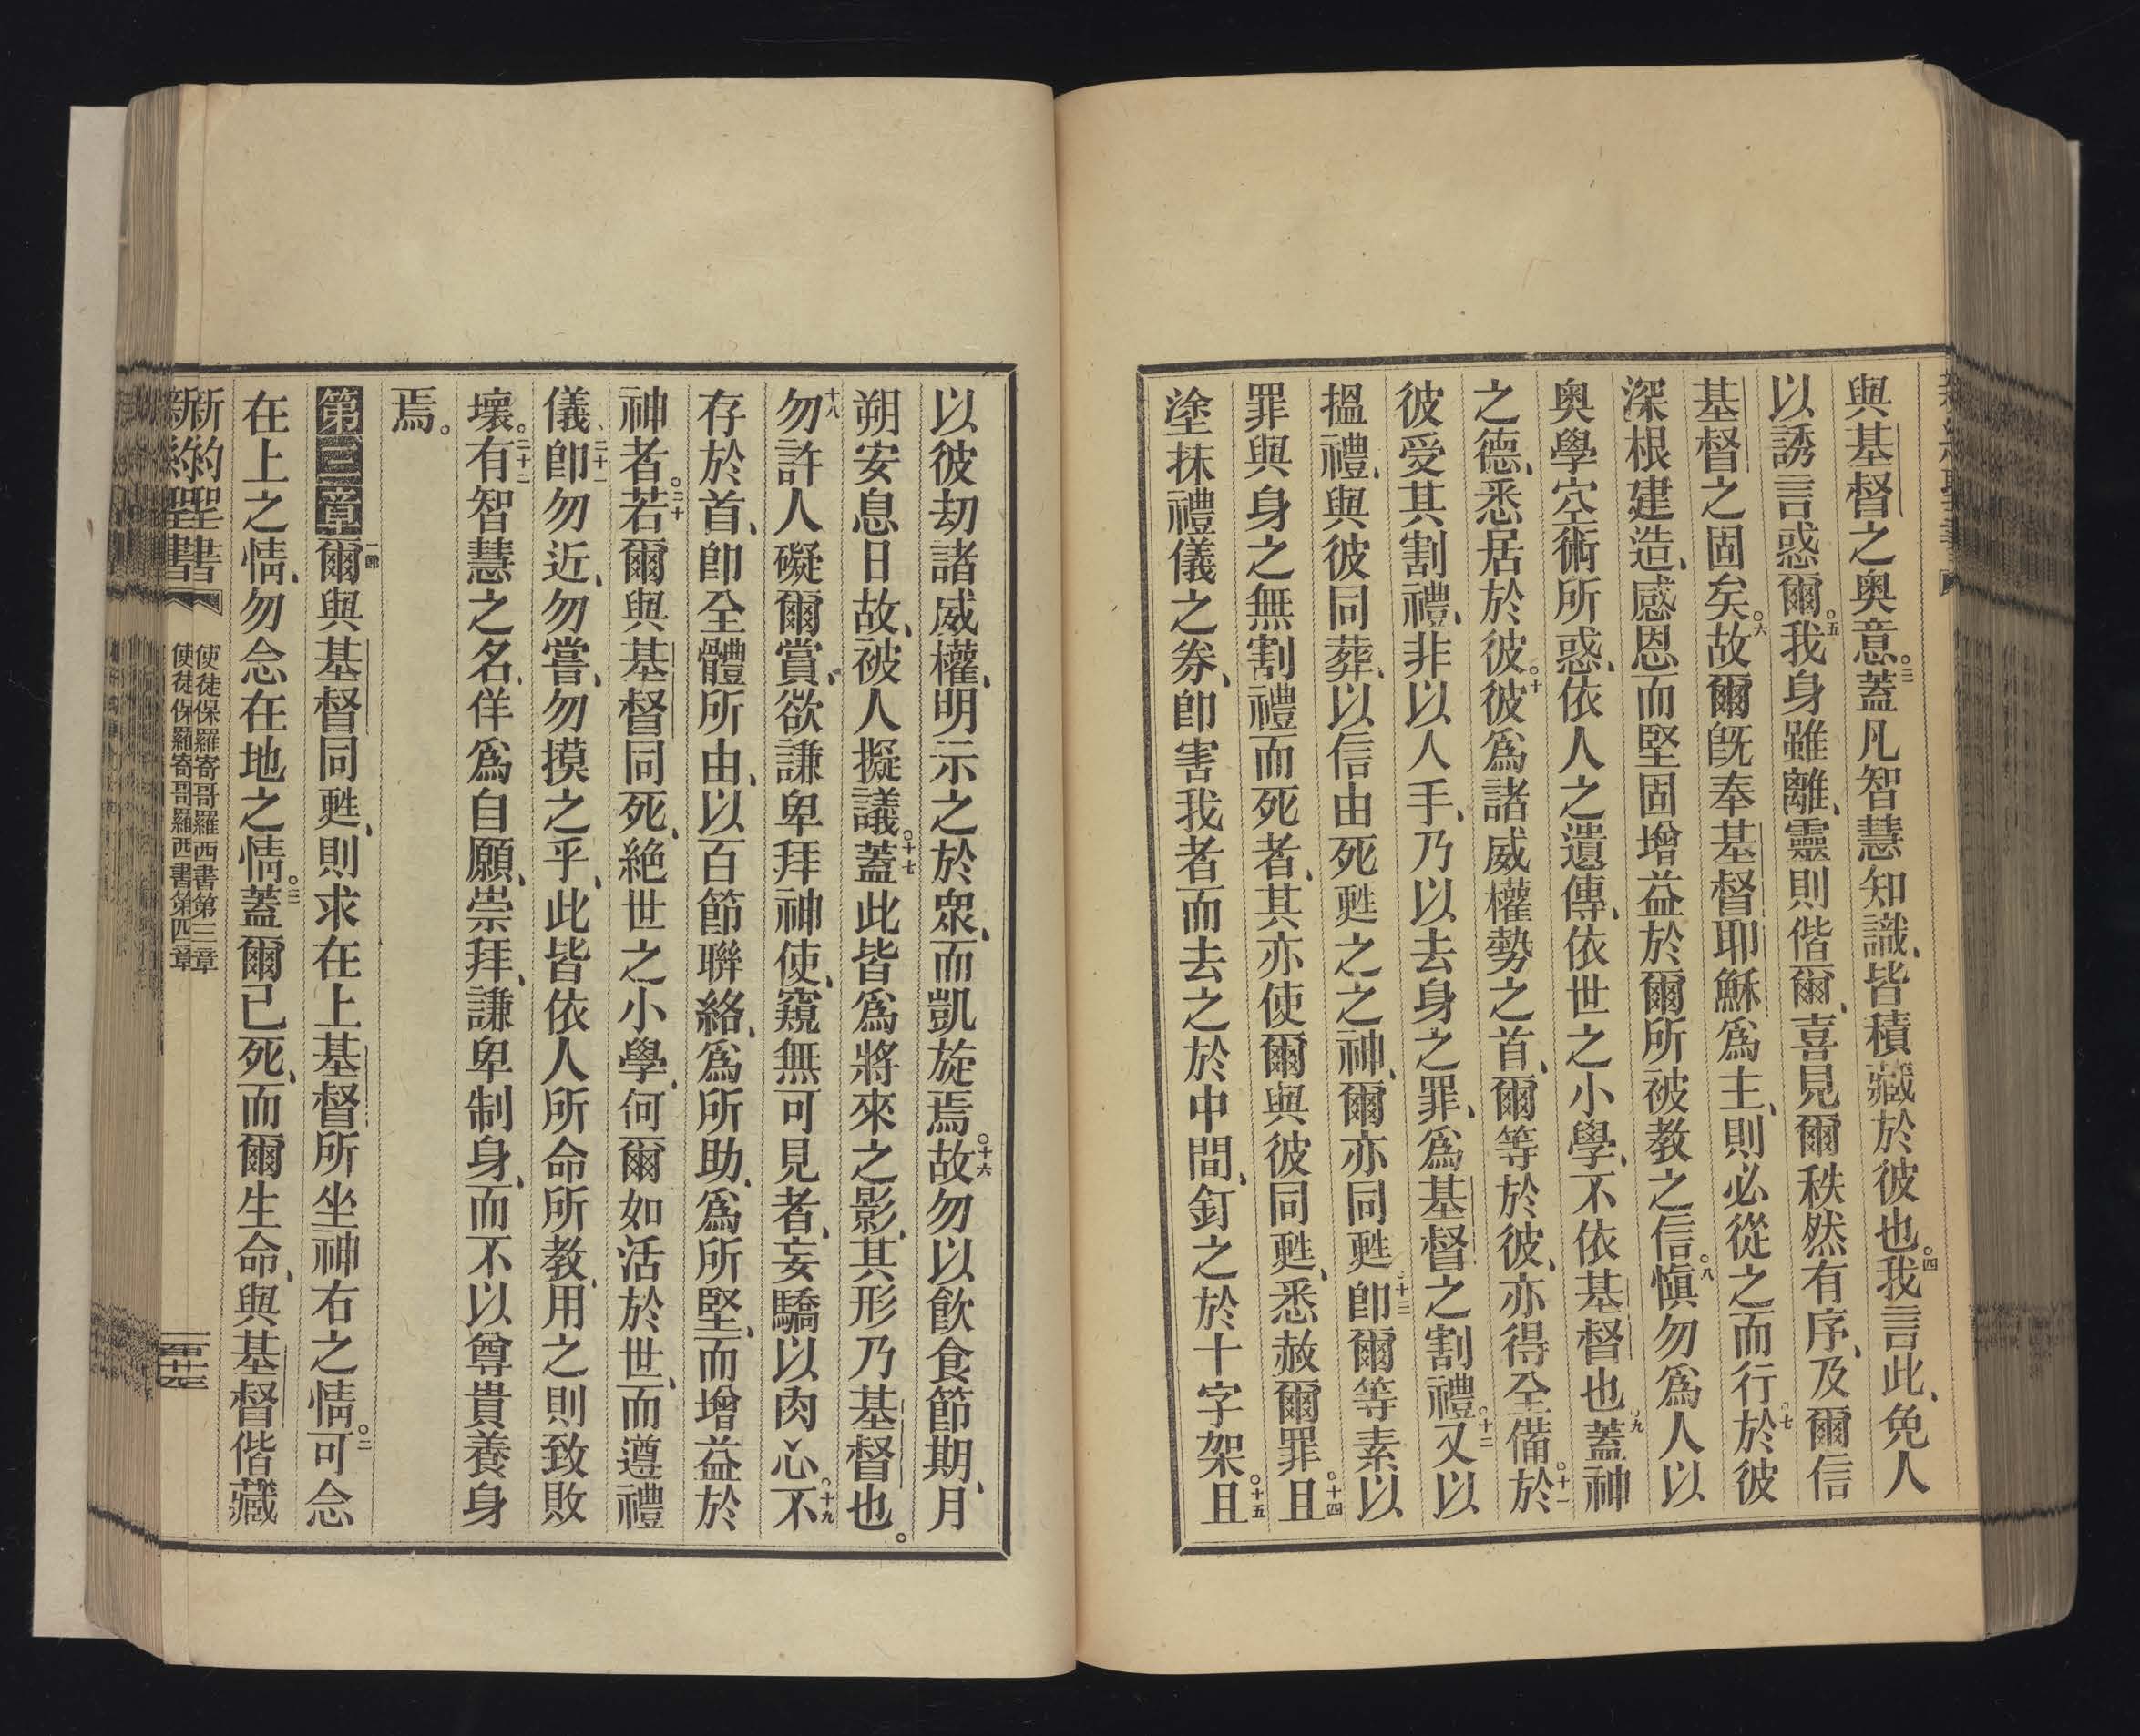 與基督之奧意。三蓋凡智慧知識、皆積藏於彼也。四我言此、免人
以誘言惑爾。五我身雖離、靈則偕爾、喜見爾秩然有序、及爾信
基督之固矣。六故爾旣奉基督耶穌爲主、則必從之而行。七於彼
深根建造、感恩而堅固增益於爾所被教之信。八愼勿爲人以
奧學空術所惑、依人之遺傳、依世之小學、不依基督也。九蓋神
之德、悉居於彼。十彼爲諸威權勢之首、爾等於彼、亦得全備。十一於
彼受其割禮、非以人手、乃以去身之罪、爲基督之割禮。十二又以
搵禮、與彼同葬、以信由死甦之之神、爾亦同甦。十三卽爾等素以
罪與身之無割禮而死者、其亦使爾與彼同甦、悉赦爾罪。十四且
塗抹禮儀之券、卽害我者而去之於中間、釘之於十字架。十五且
以彼刧諸威權、明示之於眾、而凱旋焉。十六故勿以飮食節期、月
朔安息日故、被人擬議。十七蓋此皆爲將來之影、其形乃基督也。
十八勿許人礙爾賞、欲謙卑拜神使、窺無可見者、妄驕以肉心。十九不
存於首、卽全體所由、以百節聯絡、爲所助、爲所堅、而增益於
神者。二十若爾與基督同死、絶世之小學、何爾如活於世、而遵禮
儀、二十一卽勿近、勿嘗、勿摸之乎、此皆依人所命所教、用之則致敗
壞。二十二有智慧之名、佯爲自願、崇拜、謙卑制身、而不以尊貴養身
焉。
第三章 一節爾與基督同甦、則求在上基督所坐神右之情。二可念
在上之情、勿念在地之情。三蓋爾已死、而爾生命、與基督偕藏
新約聖書 使徒保羅寄哥羅西書第三章
新約聖書 使徒保羅寄哥羅西書第四章